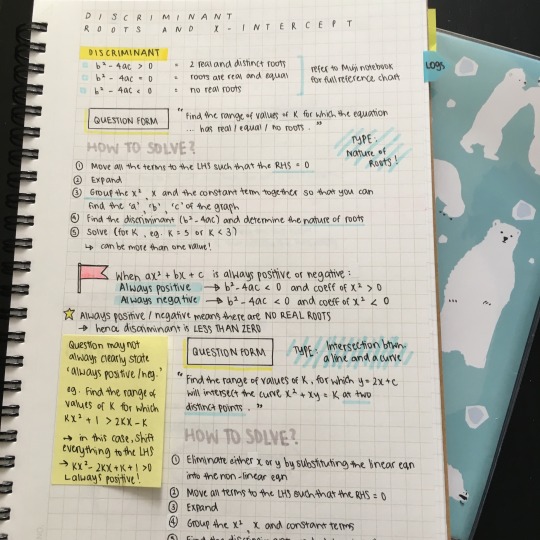 DISCRIMINANT
ROOTS AND X-INTERCEPT
DISCRIMINANT
b² - 4ac > 0 = 2 real and distinct roots
b² - 4ac = 0 = roots are real and equal
b² - 4ac < 0 = no real roots
refer to Muji notebook
for full reference chart
LOGS
QUESTION FORM
"Find the range of values of K for which the equation
... has real / equal / no roots."
TYPE:
Nature of
Roots!
HOW TO SOLVE?
① Move all the terms to the LHS such that the RHS = 0
② Expand
③ Group the x², x and the constant term together so that you can
find the 'a', 'b', 'c' of the graph
④ Find the discriminant (b² - 4ac) and determine the nature of roots
⑤ Solve (for K, eg. K = 5 or K < 3)
↳ can be more than one value!
When ax² + bx + c is always positive or negative:
Always positive → b² - 4ac < 0 and coeff of x² > 0
Always negative → b² - 4ac < 0 and coeff of x² < 0
Always positive / negative means there are NO REAL ROOTS
→ hence discriminant is LESS THAN ZERO
Question may not
always clearly state
'always positive / neg.'
eg. Find the range of
values of K for which
Kx² + 1 > 2Kx - K
→ in this case, shift
everything to the LHS
→ Kx² - 2Kx + K + 1 > 0
↳ always positive!
QUESTION FORM
TYPE: Intersection btwn
a line and a curve
"Find the range of values of K, for which y = 2x + c
will intersect the curve x² + xy = K at two
distinct points."
HOW TO SOLVE?
① Eliminate either x or y by substituting the linear eqn
into the non-linear eqn
② Move all terms to the LHS such that the RHS = 0
③ Expand
④ Group the x², x and constant terms
⑤ Find the